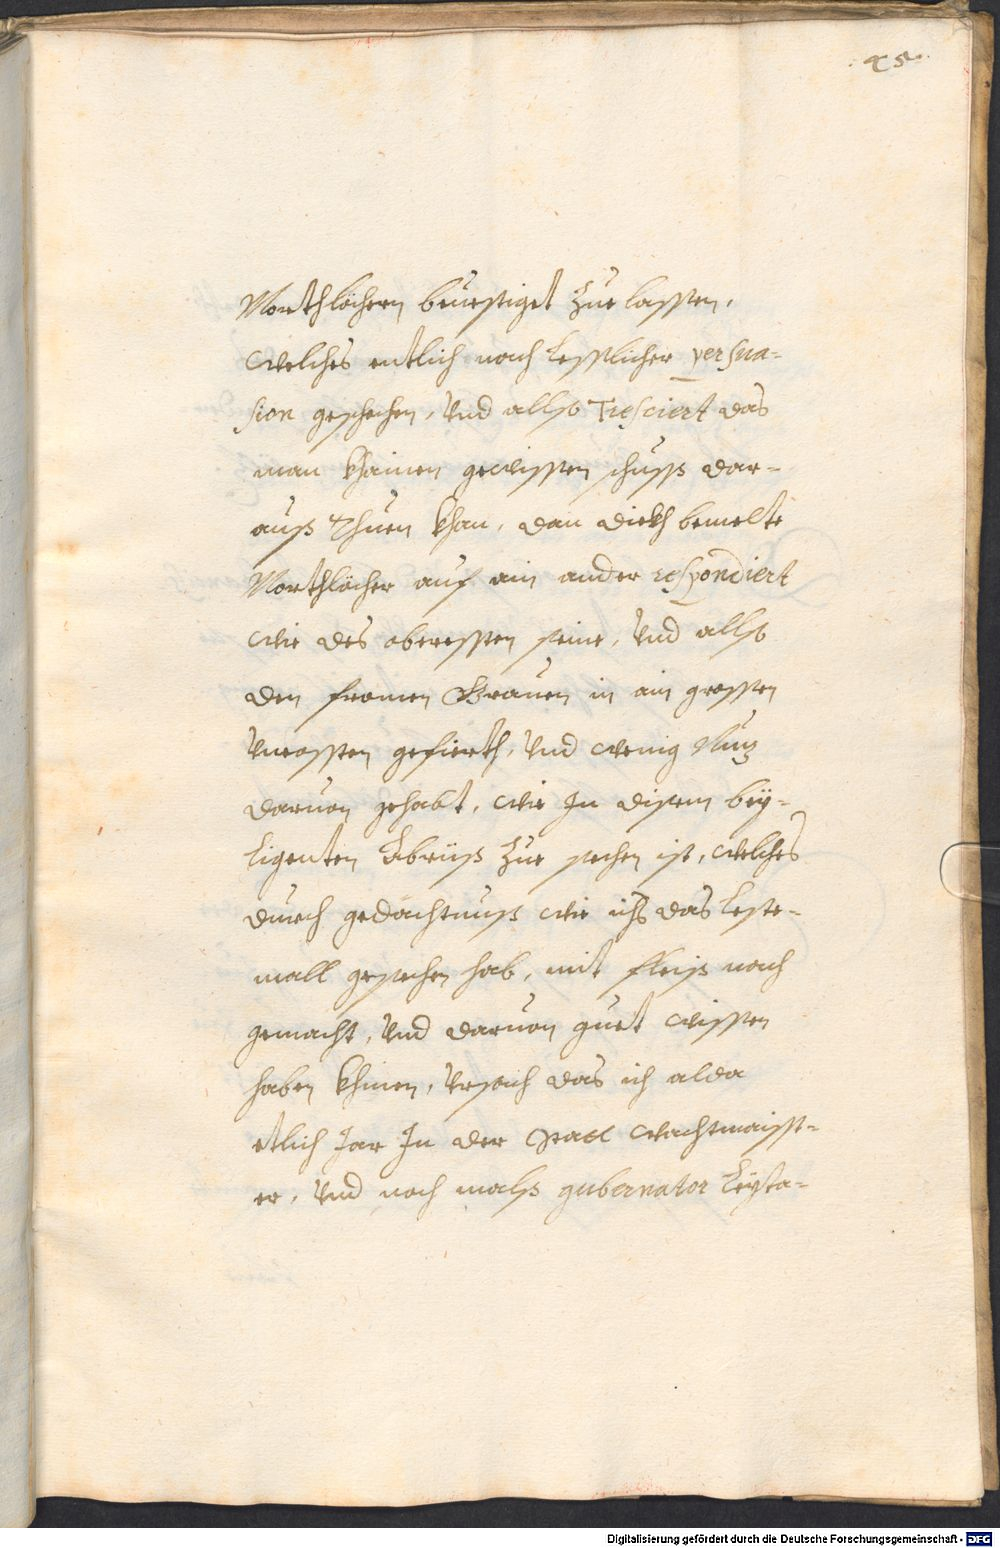 45.
Morthlöchern beuestiget zue lassen,
welches entlich nach lesslicher persua-
sion geschehen, vnd allso Tresciert das
man khainen gewissen schuss dar-
auß thuen khan, dan diekh bemelte
Morthlöcher auf ain ander respondiert
wie des oberessten seine, vnd allso
den fromen Grauen in ain grossen
vncossten gefierth, vnd wenig Nuz
daruon gehabt, wie In disem bey-
ligenten Abriß zue sechen ist, welches
durch gedächtnuß wie ichs das leste-
mall gesechen hab, mit fleiß nach
gemacht, vnd daruon guet wissen
haben khinen, vrsach das ich alda
etlich Jar In der Statt wachtmaisst-
er, vnd nach malß gubernator Leyta-
Digitalisierung gefördert durch die Deutsche Forschungsgemeinschaft - DFG